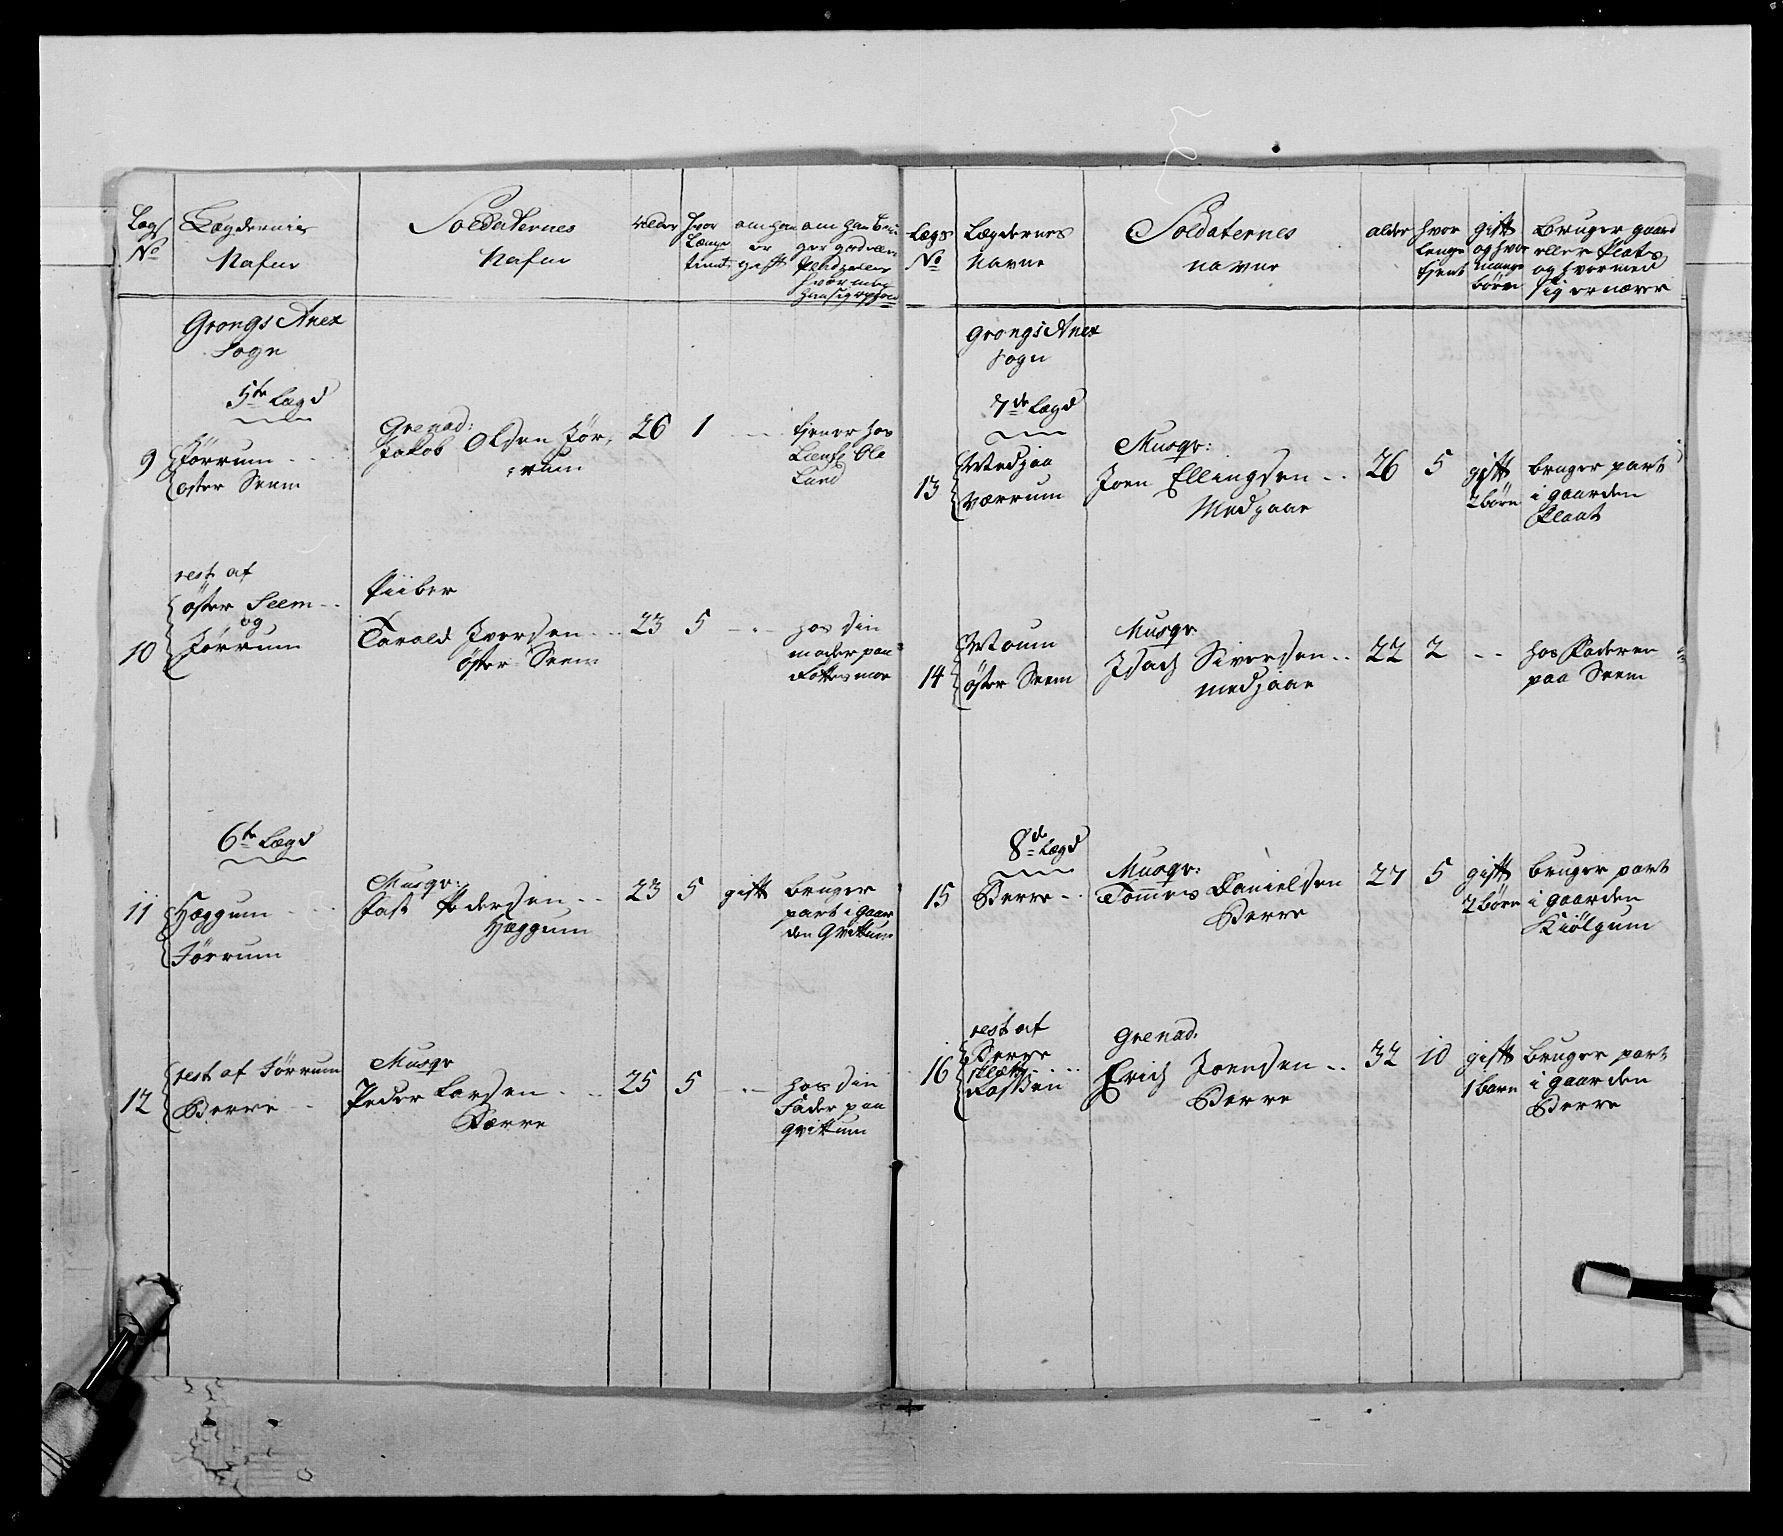 Lægs
No
Lægdernis
Nafne
Soldaternes
Nafne
alder
hvor
Længe
tient
om han
er
gift
om han bru
ger gord eller
Grongs Anex
Sogn
5te Lægd
9
Førrum
øster Seem
Grenad:
Jakob Olsen Før-
rum
26
1
tjener hos
Lieut: Ole
Lund
rest af
10
øster Seem
og
Førrum
Piiber
Tarald Iversen
øster Seem
23
5
hos sin
moder paa
6te Lægd
11
Hæggum
Førrum
Musqv:
Pedersen
Hæggum
23
5
gift
bruger
part i gaar
den Gvittum
12
rest af Førrum
Berre
Musqv
Peder Larsen
Bærre
25
5
hos sin
Fader paa
Gvittum
Lægs
No
Lægdernes
Navne
Soldaternes
navne
alder
hvor
lenge
tjent
gift
og hvor
mange
børn
bruger gaard
eller Plats
og hvormed
sig ernærer
Grongs Anex
sogn
7de Lægd
13
Medjaa
Værrum
Musqv:
Joen Ellingsen
Medjaae
26
5
gift
2 børn
bruger part
i gaarden
Flaat
14
Moum
øster Seem
Musqv.
Isach Siversen
medjaae
22
2
hos Faderen
paa Seem
8de Lægd
15
Berre
Musqv:
Tommes Danielsen
Berre
27
5
gift
2 børn
bruger part
i gaarden
Kiølgum
16
rest af
Berre
Grenad.
Erich Joensen
Berre
32
10
gift
1 barn
bruger part
i gaarden
Berre